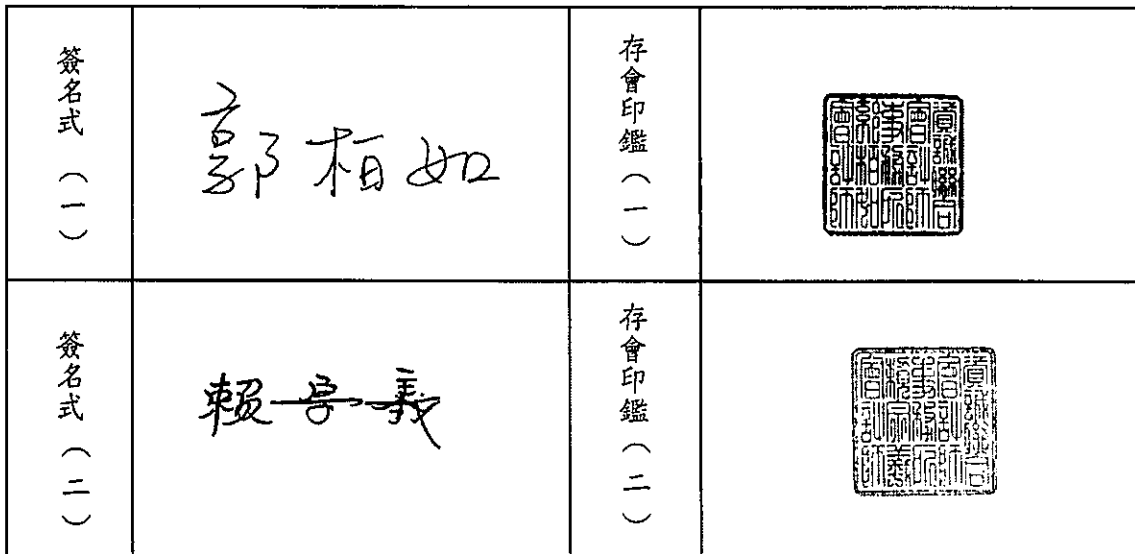 簽名式（一）
郭柏如
存會印鑑（一）
資誠聯合
會計師
事務所
郭柏如
會計師
簽名式（二）
賴宗義
存會印鑑（二）
資誠聯合
會計師
事務所
賴宗義
會計師